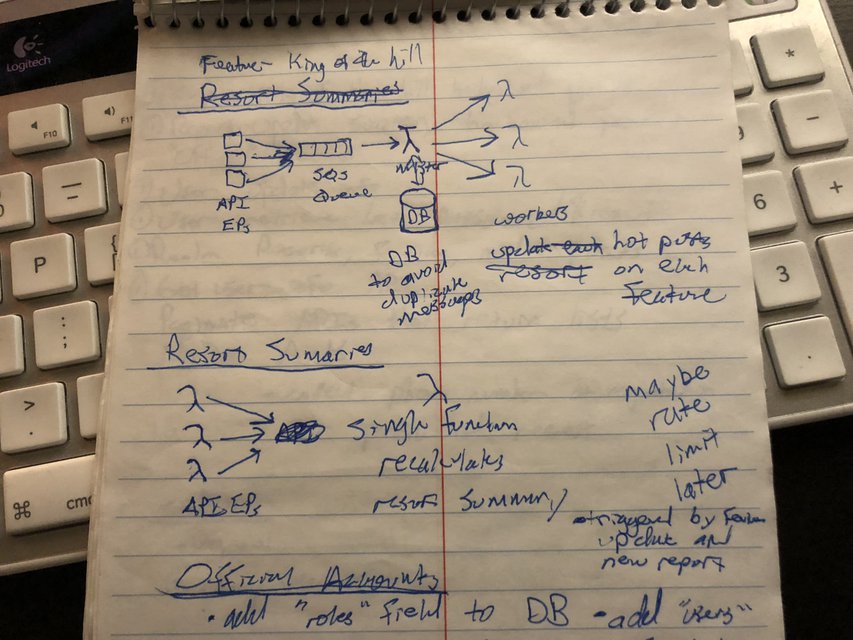 Feature - King of the hill
Resort Summaries
λ
λ
λ
λ
master
SQS
Queue
API
EPs
DB
workers
update each hot posts
resort on each
Feature
DB
to avoid
duplicate
messages
Resort Sumaries
λ
λ
λ
λ
API EPs
single function
recalculates
resort summary
maybe
rate
limit
later
triggered by feature
update and
new report
Official Accounts
• add "roles" field to DB • add "users"
Logitech
F10
F11
P
{
[
:
;
>
.
⌘
cm
*
-
+
6
3
.